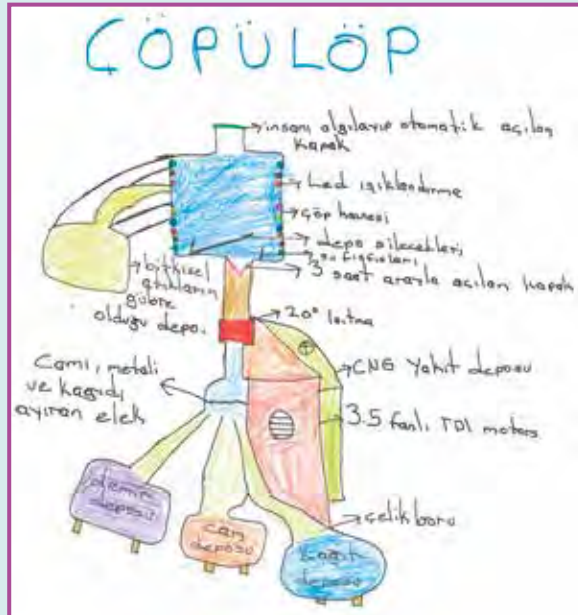 ÇÖPÜLÖP
insanı algılayıp otomatik açılan
kapak
Led ışıklandırme
çöp haznesi
depo silecekleri
su fıskiyeleri
3 saat arayla açılan kapak
bitkisel
atıkların
gübre
olduğu depo.
20° ısıtma
CNG Yakıt deposu
Camı, metali
ve kağıdı
ayıran elek
3.5 fanlı TDI motoru
çelik boru
demir
deposu
cam
deposu
kağıt
deposu